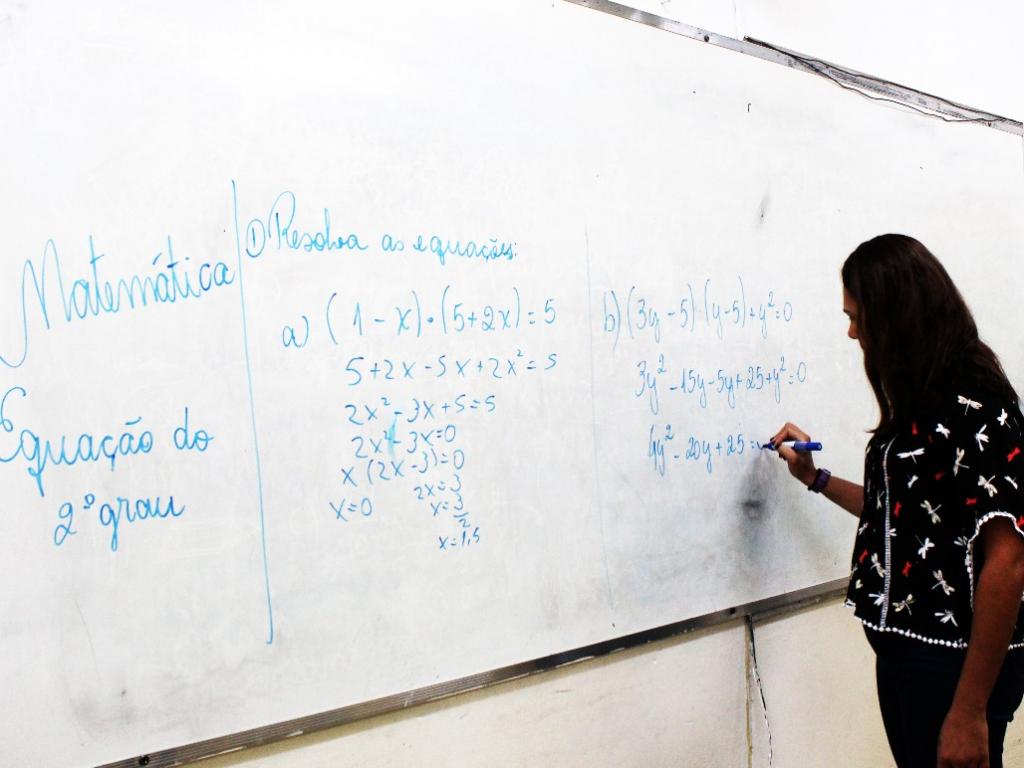 Matemática
Equação do
2º grau
① Resolva as equações:
a) (1 - x)•(5+2x) = 5
5+2x-5x+2x² = 5
2x²-3x+5=5
2x²-3x=0
x (2x-3)=0
x=0
2x=3
x=3/2
x=1,5
b) (3y-5)•(y-5)+y²=0
3y²-15y-5y+25+y²=0
4y²-20y+25=